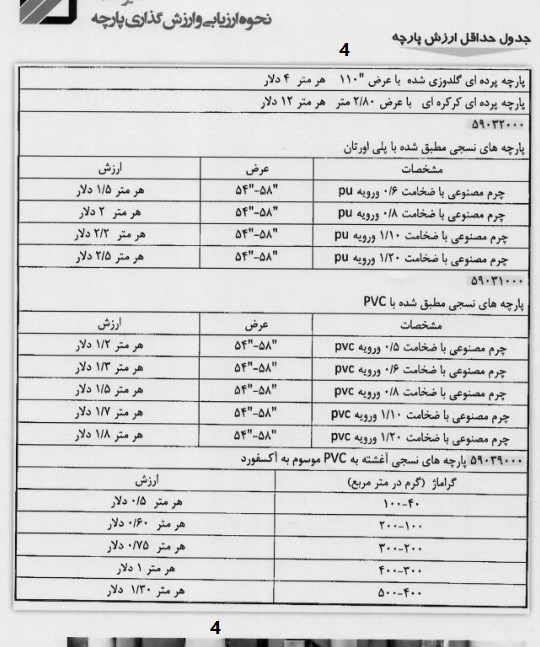 نحوه ارزیابی وارزش گذاری پارچه
جدول حداقل ارزش پارچه
4
پارچه پرده ای گلدوزی شده با عرض "۱۱۰ هر متر ۴ دلار
پارچه پرده ای کرکره ای با عرض ۲/۸۰ متر هر متر ۱۲ دلار
۵۹۰۳۲۰۰۰
پارچه های نسجی مطبق شده با پلی اورتان
مشخصات عرض ارزش
چرم مصنوعی با ضخامت ۰/۶ ورویه pu ۵۴"-۵۸" هر متر ۱/۵ دلار
چرم مصنوعی با ضخامت ۰/۸ ورویه pu ۵۴"-۵۸" هر متر ۲ دلار
چرم مصنوعی با ضخامت ۱/۱۰ ورویه pu ۵۴"-۵۸" هر متر ۲/۲ دلار
چرم مصنوعی با ضخامت ۱/۲۰ ورویه pu ۵۴"-۵۸" هر متر ۲/۵ دلار
۵۹۰۳۱۰۰۰
پارچه های نسجی مطبق شده با PVC
مشخصات عرض ارزش
چرم مصنوعی با ضخامت ۰/۵ ورویه pvc ۵۴"-۵۸" هر متر ۱/۲ دلار
چرم مصنوعی با ضخامت ۰/۶ ورویه pvc ۵۴"-۵۸" هر متر ۱/۳ دلار
چرم مصنوعی با ضخامت ۰/۸ ورویه pvc ۵۴"-۵۸" هر متر ۱/۵ دلار
چرم مصنوعی با ضخامت ۱/۱۰ ورویه pvc ۵۴"-۵۸" هر متر ۱/۷ دلار
چرم مصنوعی با ضخامت ۱/۲۰ ورویه pvc ۵۴"-۵۸" هر متر ۱/۸ دلار
۵۹۰۳۹۰۰۰ پارچه های نسجی آغشته به PVC موسوم به آکسفورد
گراماژ (گرم در متر مربع) ارزش
۱۰۰-۴۰ هر متر ۰/۵ دلار
۲۰۰-۱۰۰ هر متر ۰/۶۰ دلار
۳۰۰-۲۰۰ هر متر ۰/۷۵ دلار
۴۰۰-۳۰۰ هر متر ۱ دلار
۵۰۰-۴۰۰ هر متر ۱/۳۰ دلار
4